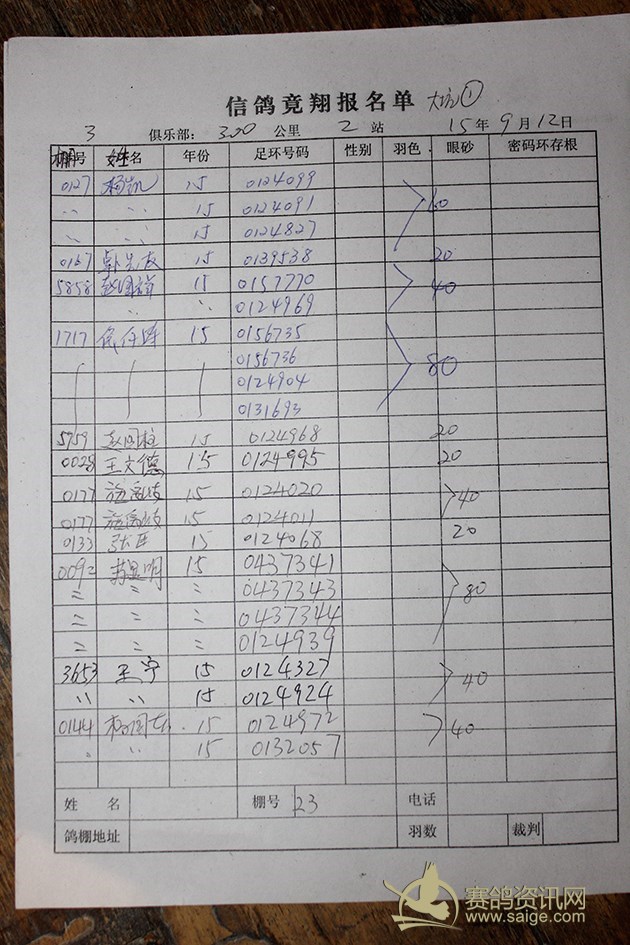 信鸽竟翔报名单 大坑①
3 俱乐部: 300 公里 2 站 15年 9月 12日
棚号 姓名 年份 足环号码 性别 羽色 眼砂 密码环存根
0127 杨凯 15 0124099
〃 〃 15 0124091 60
〃 〃 15 0124827
0167 15 0139538 20
5858 赵国祥 15 0157770 40
〃 〃 0124969
1717 15 0156735
0156736 80
0124904
0131693
5759 赵国柱 15 0124968 20
0028 王文德 15 0124995 20
0177 15 0124020 40
0177 15 0124011
0133 15 0124068 20
0092 15 0437341
〃 〃 〃 0437343 80
〃 〃 〃 0437344
〃 〃 〃 0124939
3653 王宁 15 0124327 40
〃 〃 15 0124924
0144 15 0124972 40
〃 〃 15 0132057
姓 名 棚号 23 电话
鸽棚地址 羽数 裁判
赛鸽资讯网
www.saige.com